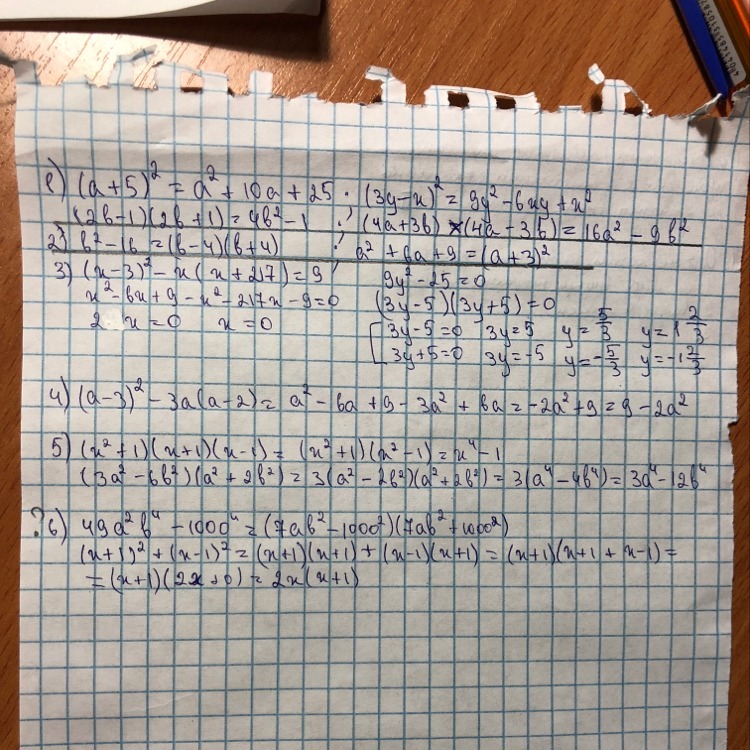 1) (a+5)² = a² + 10a + 25 . (3y-x)² = 9y² - 6xy + x²
(2b-1)(2b+1) = 4b² - 1 ! (4a+3b) (4a-3b) = 16a² - 9b²
2) b² - 16 = (b-4)(b+4) ! a² + 6a + 9 = (a+3)²
3) (x-3)² - x(x+217) = 9 9y² - 25 = 0
x² - 6x + 9 - x² - 217x - 9 = 0 (3y-5)(3y+5) = 0
x = 0 x = 0 3y-5=0 3y=5 y = 5/3 y = 1 2/3
3y+5=0 3y=-5 y = -5/3 y = -1 2/3
4) (a-3)² - 3a(a-2) = a² - 6a + 9 - 3a² + 6a = -2a² + 9 = 9 - 2a²
5) (x²+1)(x+1)(x-1) = (x²+1)(x²-1) = x⁴ - 1
(3a² - 6b²)(a² + 2b²) = 3(a² - 2b²)(a² + 2b²) = 3(a⁴ - 4b⁴) = 3a⁴ - 12b⁴
? 6) 49a²b⁴ - 100c⁴ = (7ab² - 10c²)(7ab² + 10c²)
(x+1)² + (x-1)² = (x+1)(x+1) + (x-1)(x+1) = (x+1)(x+1 + x-1) =
= (x+1)(2x+0) = 2x(x+1)